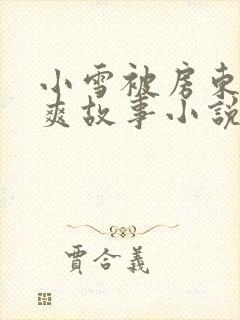 小雪被房東
爽故事小說
賈合義